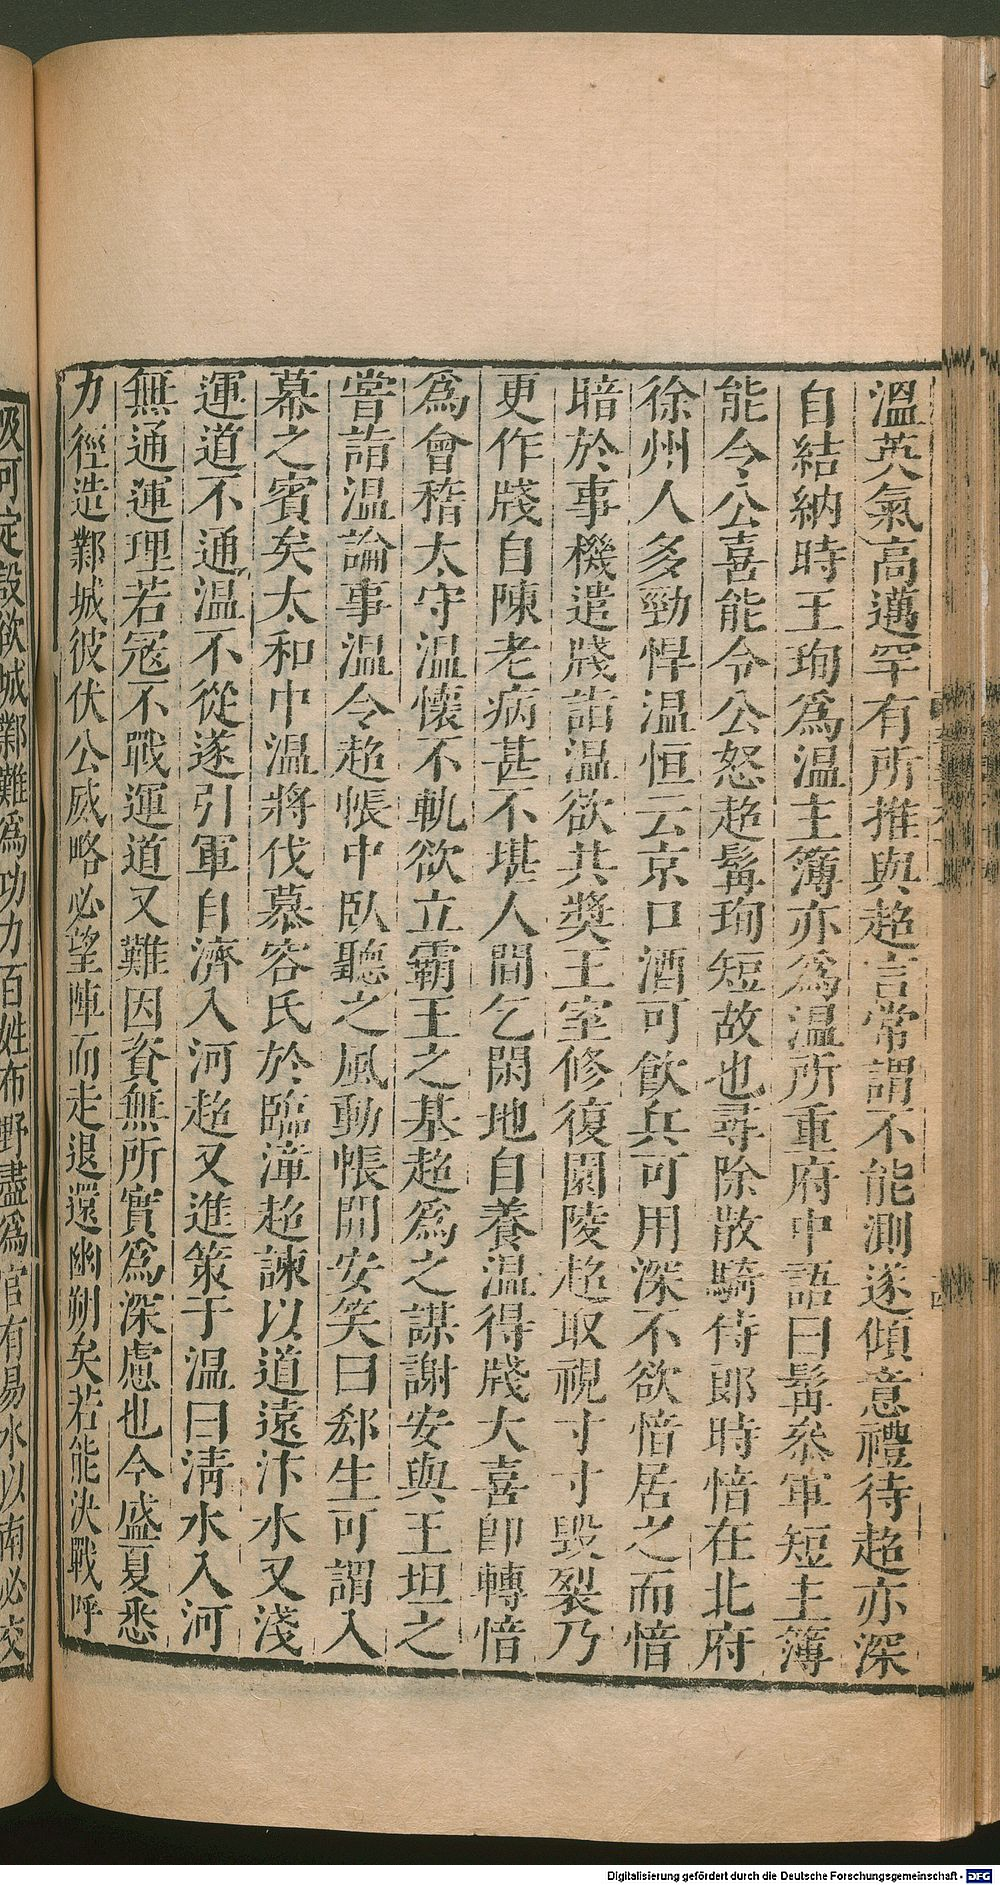 溫英氣高邁罕有所推與超言常謂不能測遂傾意禮待超亦深
自結納時王珣爲溫主簿亦爲溫所重府中語曰髯叅軍短主簿
能令公喜能令公怒超髯珣短故也尋除散騎侍郎時愔在北府
徐州人多勁悍溫恒云京口酒可飲兵可用深不欲愔居之而愔
暗於事機遣牋詣溫欲共奬王室修復園陵超取視寸寸毀裂乃
更作牋自陳老病甚不堪人間乞閑地自養溫得牋大喜卽轉愔
爲會稽太守溫懷不軌欲立霸王之基超爲之謀謝安與王坦之
嘗詣溫論事溫令超帳中臥聽之風動帳開安笑曰郄生可謂入
幕之賓矣太和中溫將伐慕容氏於臨漳超諫以道遠汴水又淺
運道不通溫不從遂引軍自濟入河超又進策于溫曰淸水入河
無通運理若寇不戰運道又難因資無所實爲深慮也今盛夏悉
力徑造鄴城彼伏公威略必望陣而走退還幽朔矣若能決戰呼
吸可定設欲城鄴難爲功力百姓布野盡爲官有易水以南必交
Digitalisierung gefördert durch die Deutsche Forschungsgemeinschaft - DFG